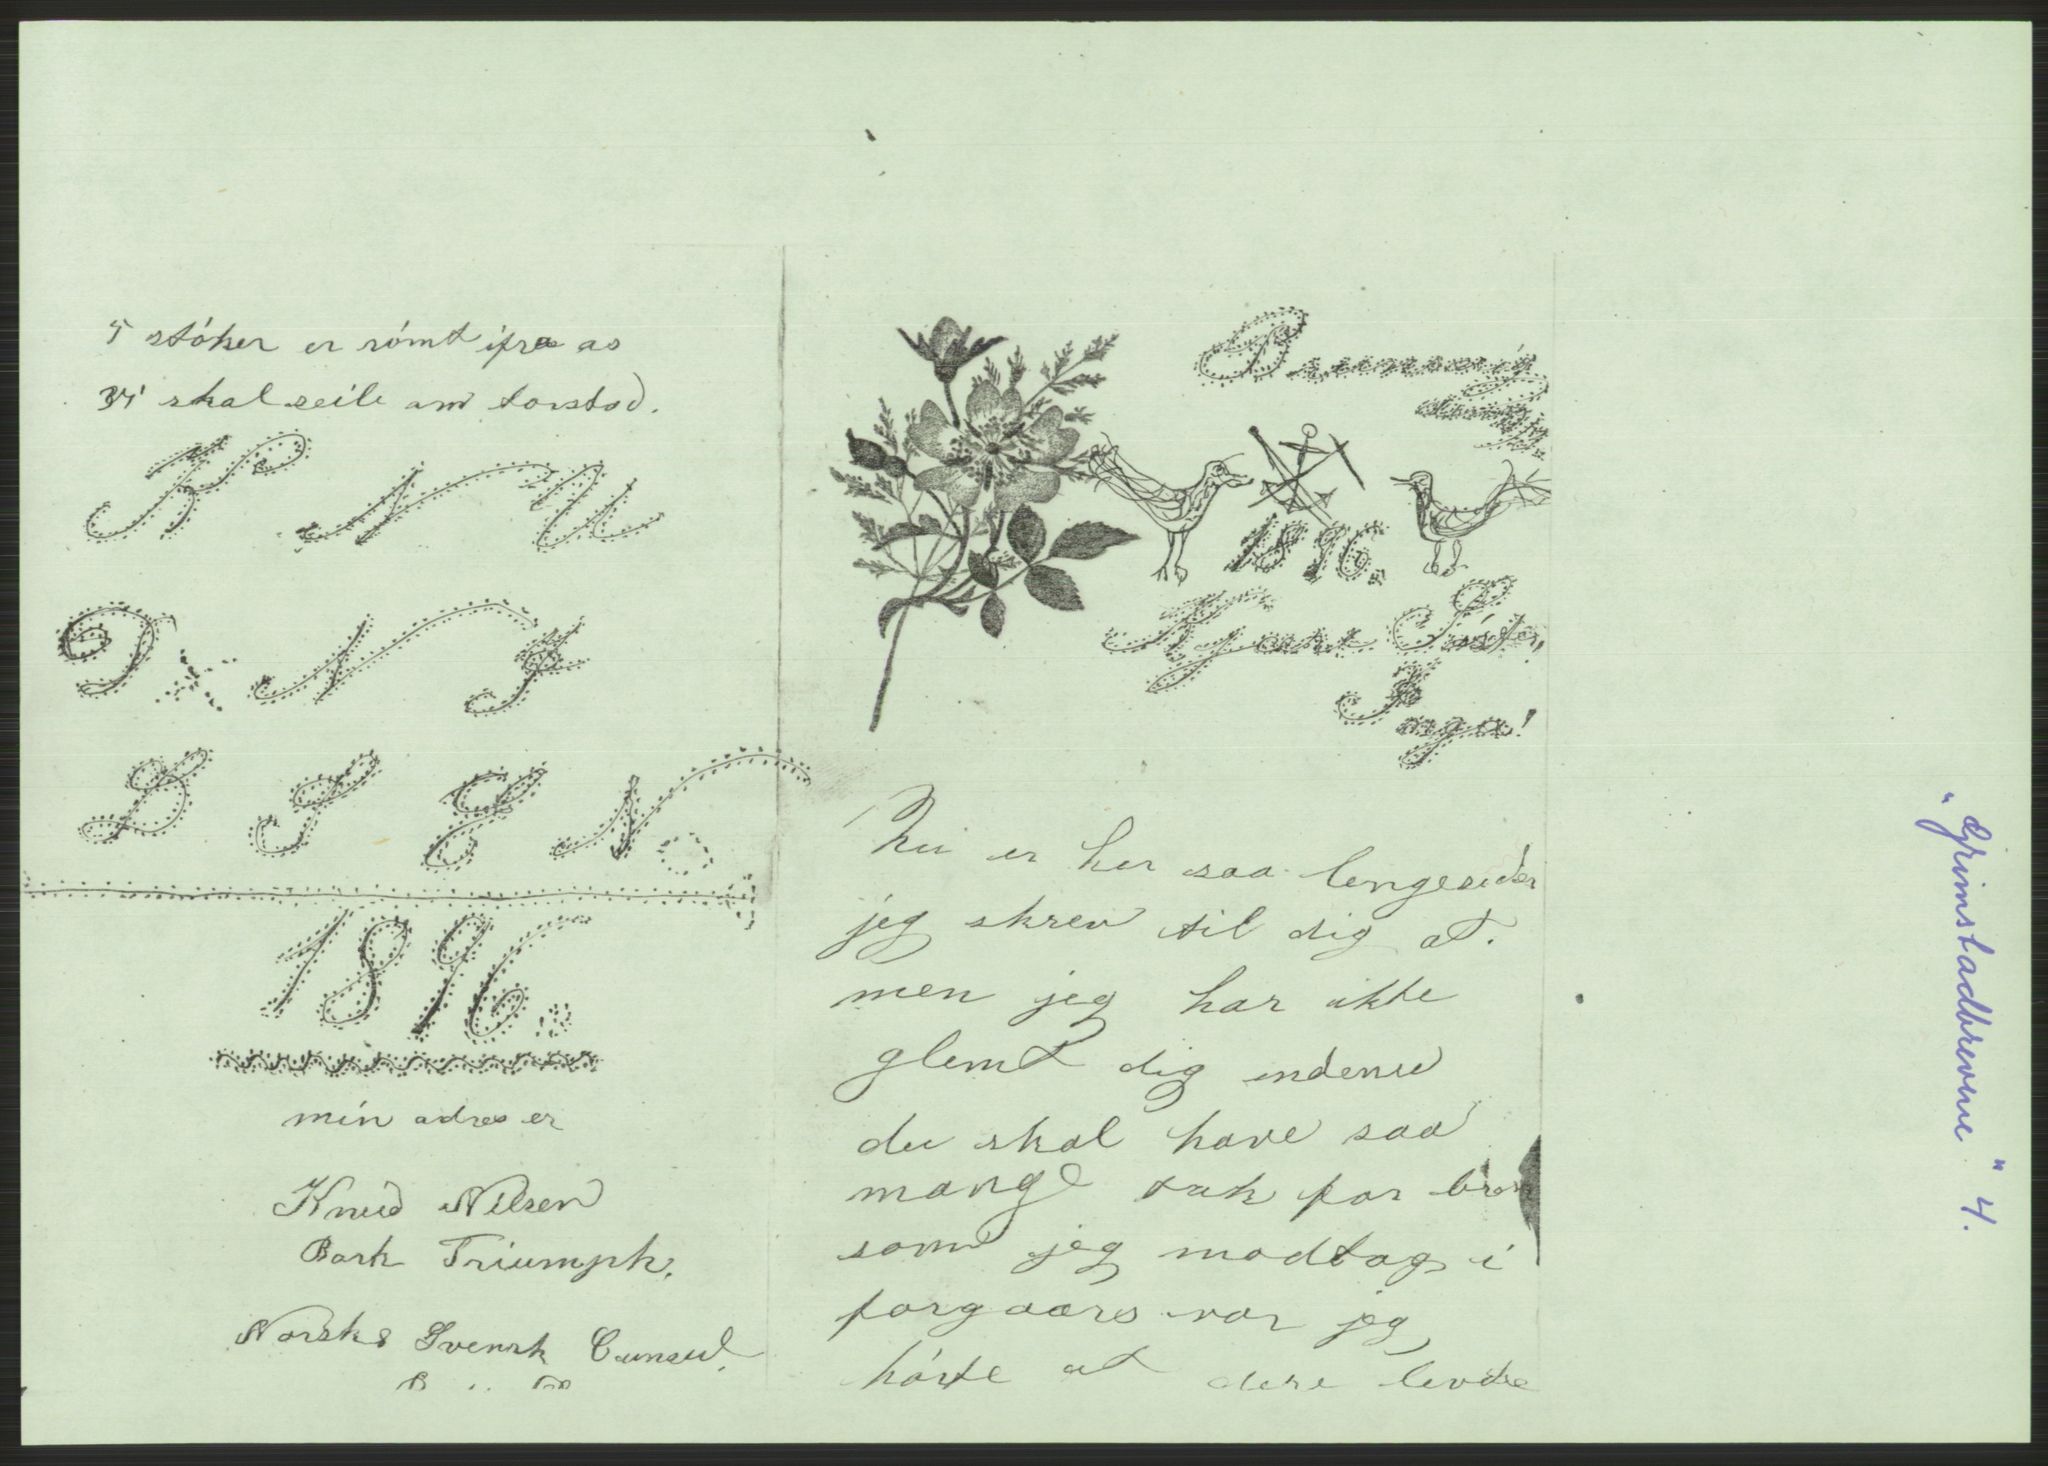 5 stóker er rómt ifra as
vi skal seile am torsdod.
K N N
D. N J
B S E N.
1896.
min adres er
Knud Nilsen
Bark Triumph.
Norsk & Svensk Cunsul.
1896.
Kjære Sóster,
Inga!
Nu er her saa lenge sider
jeg skrev til dig at.
men jeg har ikke
glemt dig endenu
du skal have saa
mange tak for brev
som jeg modtog i
forgaars var jeg
hórte at dere levde
"Grimstadbrevene" 4.